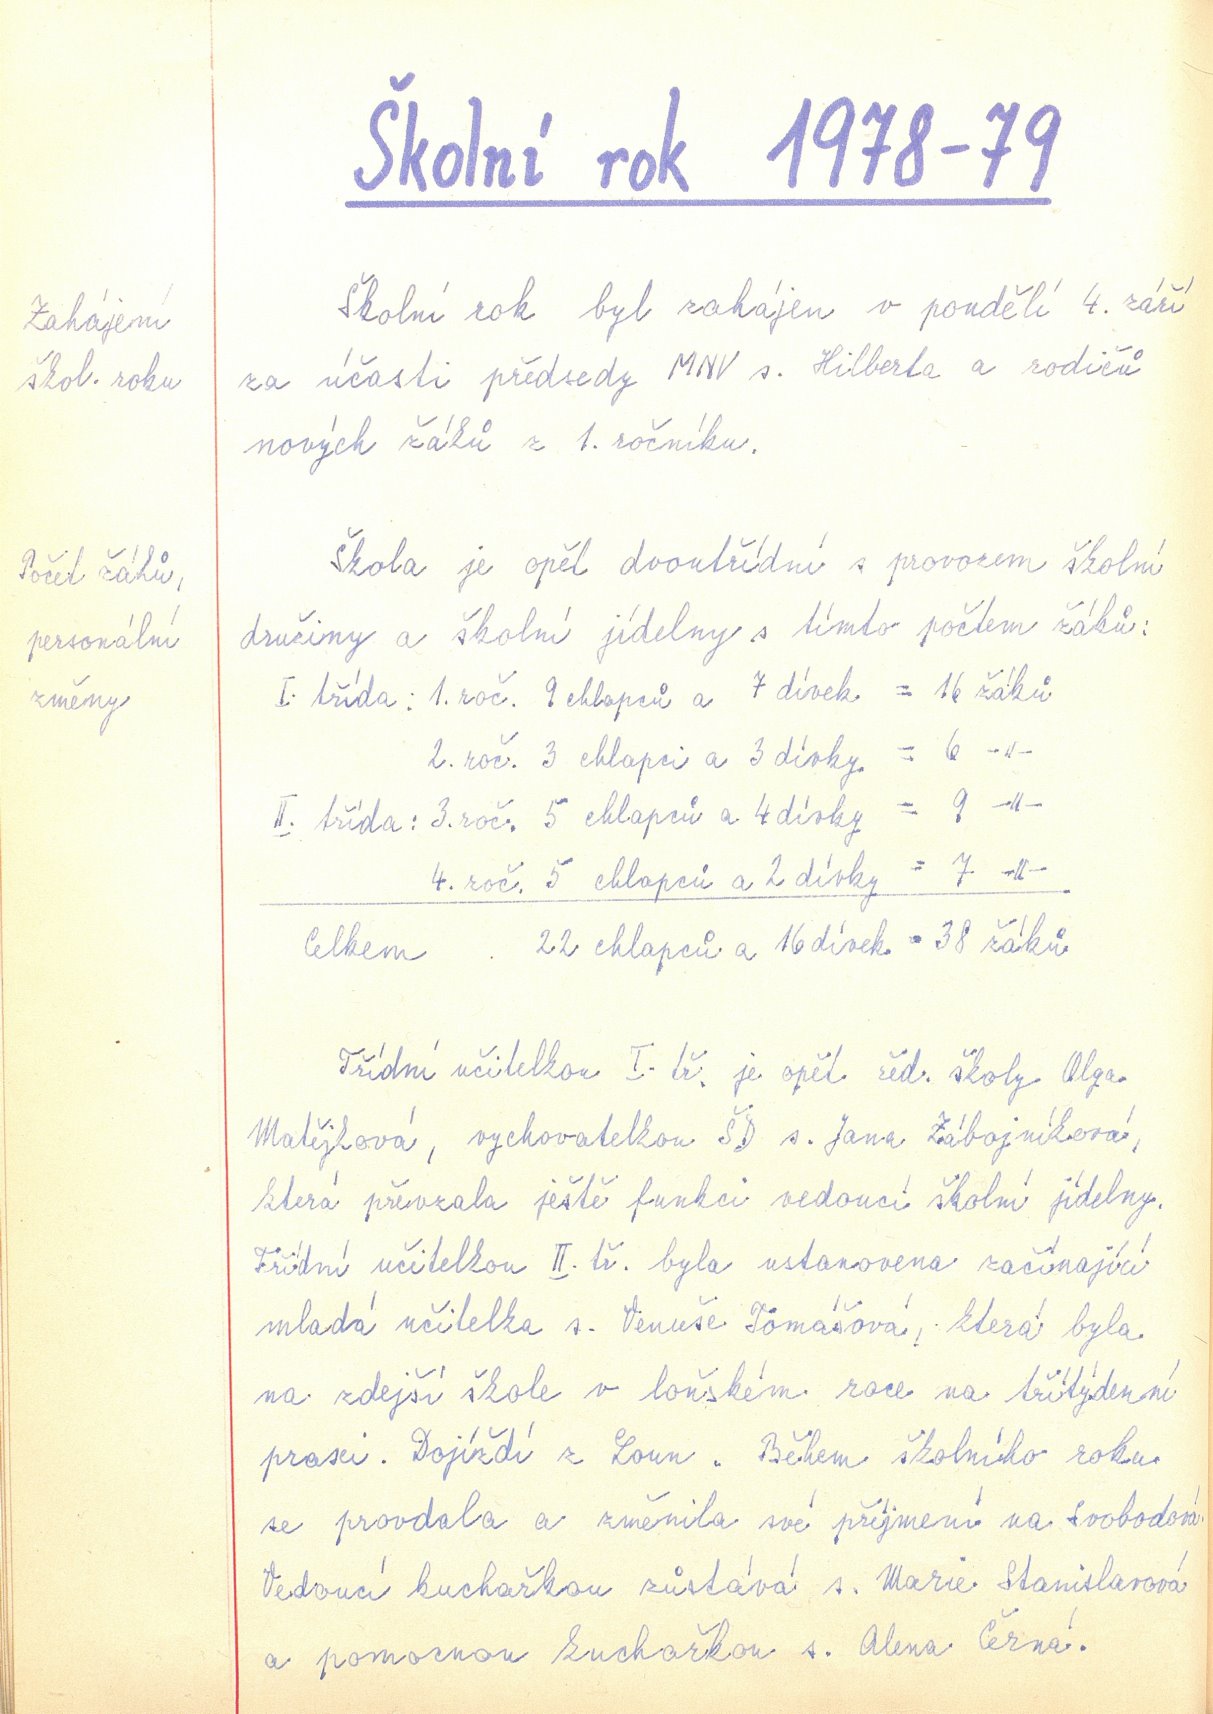 Školní rok 1978-79
Zahájení
škol. roku
Školní rok byl zahájen v pondělí 4. září
za účasti předsedy MNV s. Hilberta a rodičů
nových žáků z 1. ročníku.
Počet žáků,
personální
změny
Škola je opět dvoutřídní s provozem školní
družiny a školní jídelny s tímto počtem žáků:
I. třída: 1. roč. 9 chlapců a 7 dívek = 16 žáků
2. roč. 3 chlapci a 3 dívky = 6 -"-
II. třída: 3. roč. 5 chlapců a 4 dívky = 9 -"-
4. roč. 5 chlapců a 2 dívky = 7 -"-
Celkem 22 chlapců a 16 dívek = 38 žáků
Třídní učitelkou I. tř. je opět řed. školy Olga
Matějková, vychovatelkou ŠD s. Jana Zábojníková,
která převzala ještě funkci vedoucí školní jídelny.
Třídní učitelkou II. tř. byla ustanovena začínající
mladá učitelka s. Venuše Tomášová, která byla
na zdejší škole v loňském roce na třítýdenní
praxi. Dojíždí z Loun. Během školního roku
se provdala a změnila své příjmení na Svobodová.
Vedoucí kuchařkou zůstává s. Marie Stanislavová
a pomocnou kuchařkou s. Alena Černá.